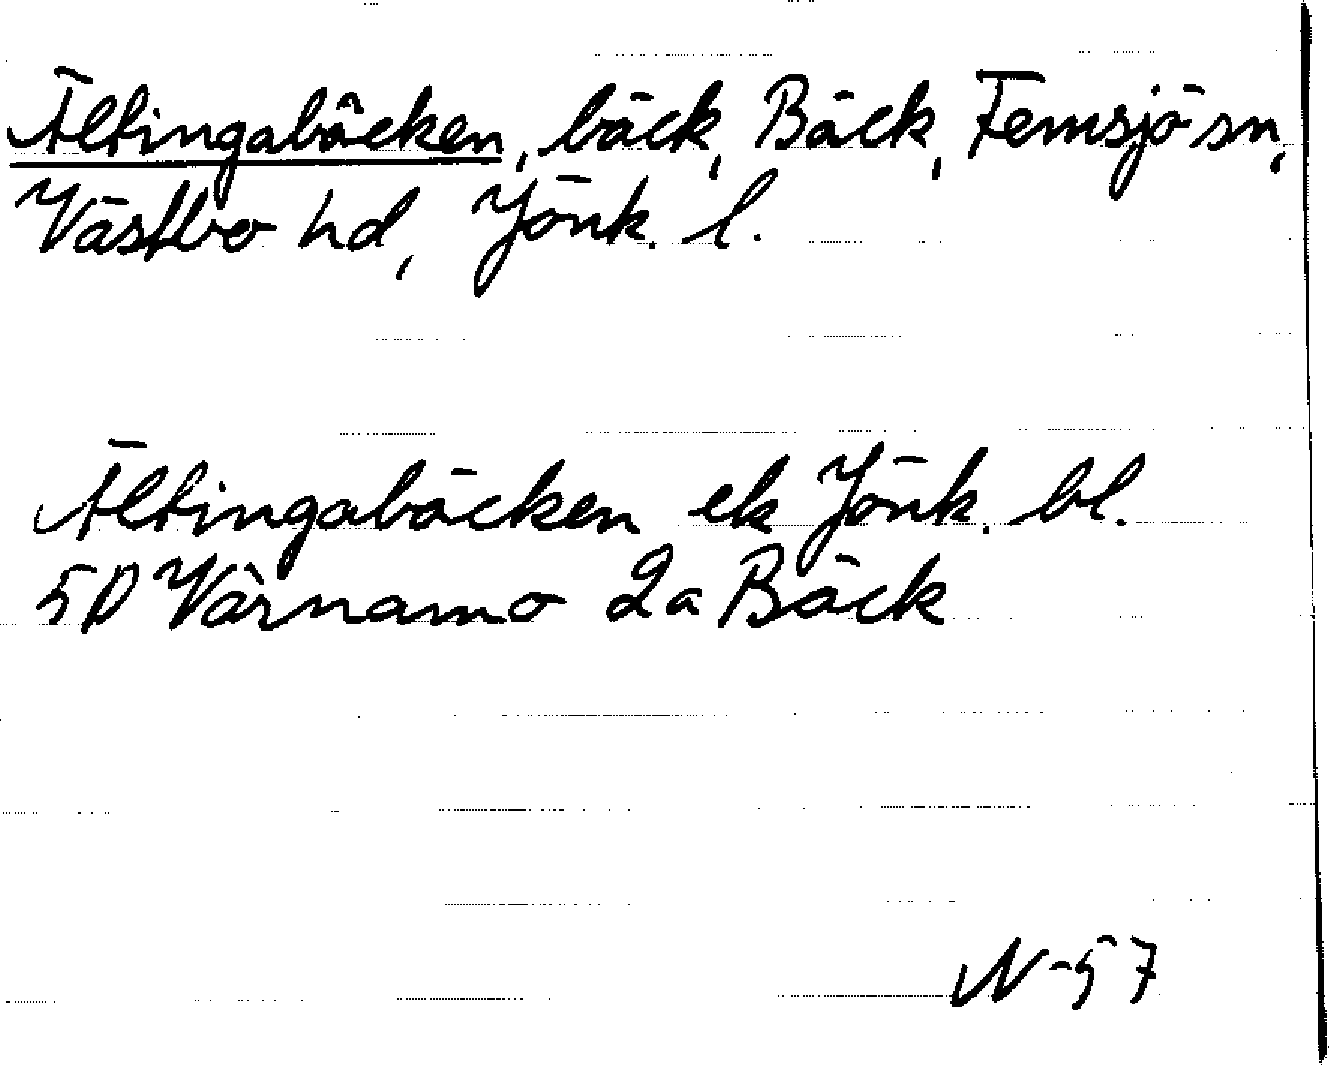 Ältingabäcken, bäck, Bäck, Femsjö sn,
Västbo hd, Jönk. l.
Ältingabäcken ek Jönk. bl.
5D Värnamo 2a Bäck
N-57